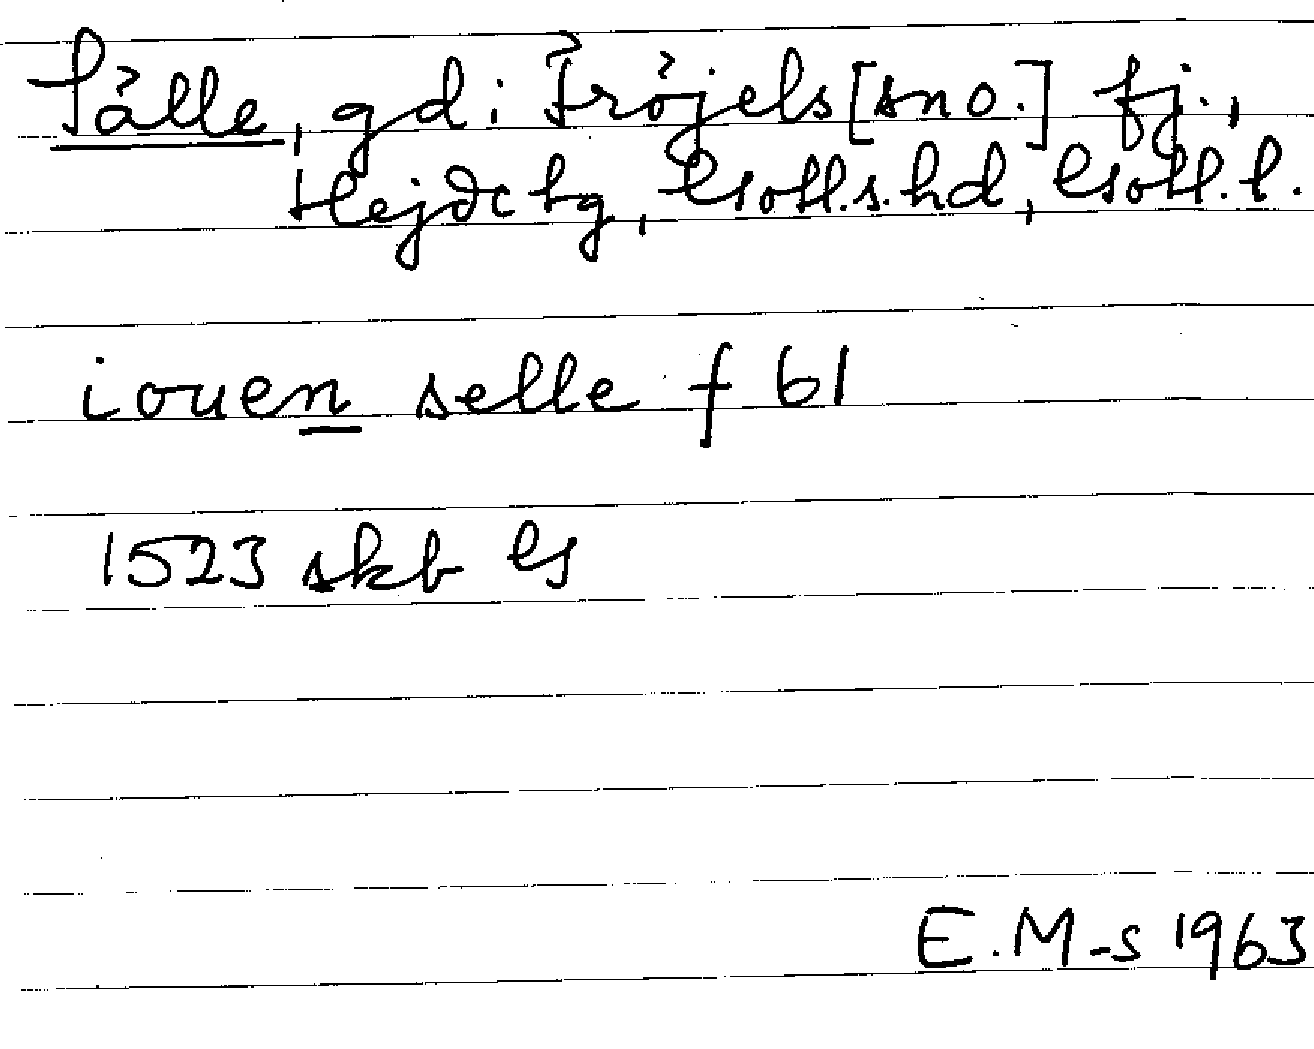 Sälle, gd i Fröjels [sno.] fj.,
Hejde tg, Gotl.s.hd, Gotl.l.
iouen selle f 61
1523 skb G
E.M-s 1963